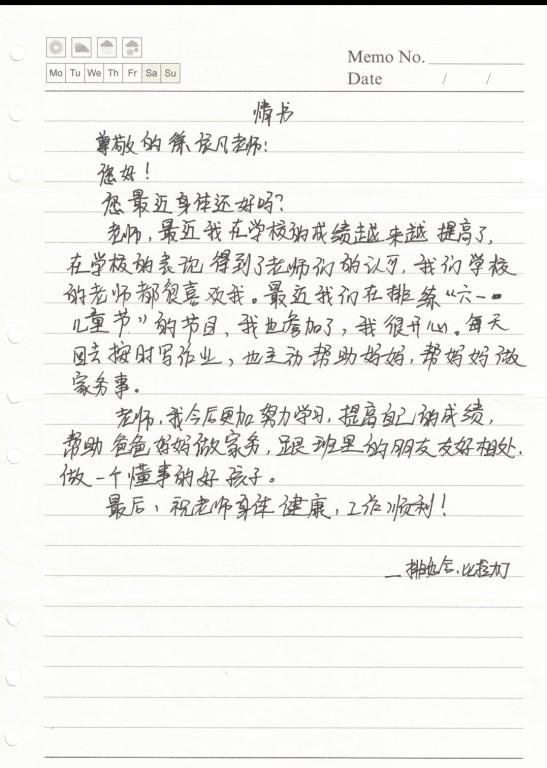 Memo No.
Mo Tu We Th Fr Sa Su
Date / /
情书
尊敬的 徐 凡老师:
您好!
您最近身体还好吗?
老师,最近我在学校的成绩越来越提高了,
在学校的表现得到了老师们的认可,我们学校
的老师都很喜欢我。最近我们在排练“六一
儿童节”的节目,我也参加了,我很开心。每天
回去按时写作业,也主动帮助妈妈,帮妈妈做
家务事。
老师,我今后更加努力学习,提高自己的成绩,
帮助爸爸妈妈做家务,跟班里的朋友友好相处.
做一个懂事的好孩子。
最后,祝老师身体健康,工作顺利!
比拉力